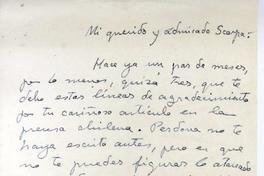 Mi querido y admirado Scarpa:
Hace ya un par de meses,
por lo menos, quizá tres, que te
debo estas líneas de agradecimiento
por tu cariñoso artículo en la
prensa chilena. Perdona no te
haya escrito antes, pero es que
no te puedes figurar lo atareado